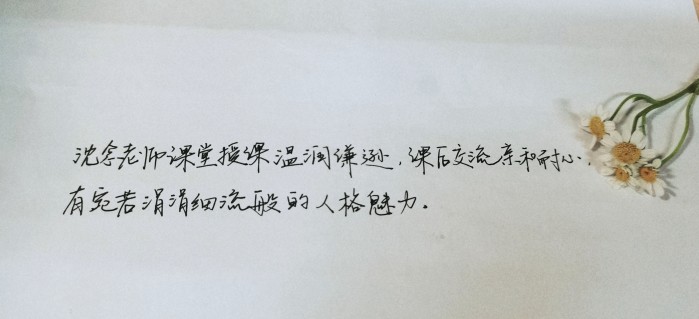 沈念老师课堂授课温润谦逊，课后交流亲和耐心，
有宛若涓涓细流般的人格魅力。